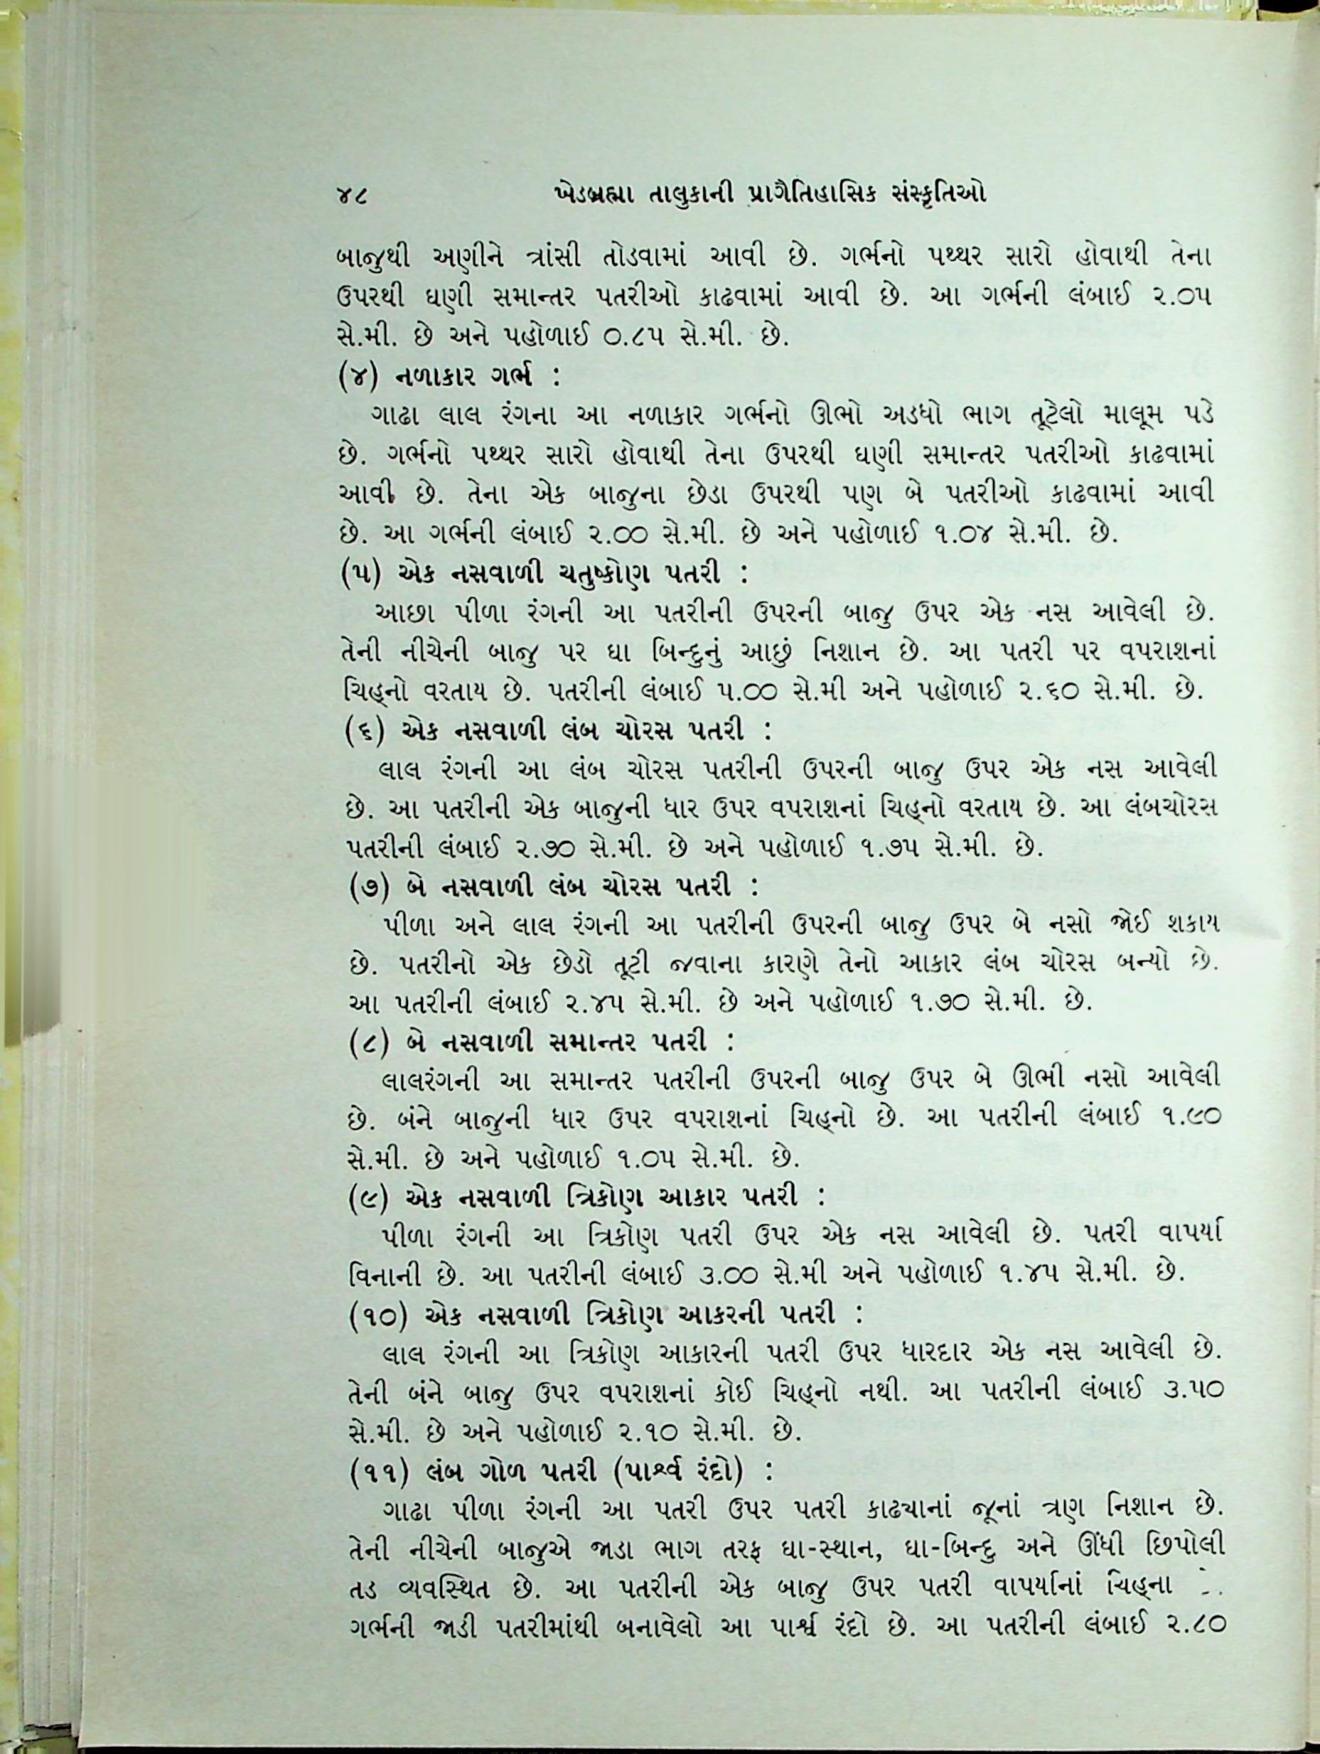 ૪૮ ખેડબ્રહ્મા તાલુકાની પ્રાગૈતિહાસિક સંસ્કૃતિઓ
બાજુથી અણીને ત્રાંસી તોડવામાં આવી છે. ગર્ભનો પથ્થર સારો હોવાથી તેના
ઉપરથી ઘણી સમાન્તર પતરીઓ કાઢવામાં આવી છે. આ ગર્ભની લંબાઈ ૨.૦૫
સે.મી. છે અને પહોળાઈ ૦.૮૫ સે.મી. છે.
(૪) નળાકાર ગર્ભ :
ગાઢા લાલ રંગના આ નળાકાર ગર્ભનો ઊભો અડધો ભાગ તૂટેલો માલૂમ પડે
છે. ગર્ભનો પથ્થર સારો હોવાથી તેના ઉપરથી ઘણી સમાન્તર પતરીઓ કાઢવામાં
આવી છે. તેના એક બાજુના છેડા ઉપરથી પણ બે પતરીઓ કાઢવામાં આવી
છે. આ ગર્ભની લંબાઈ ૨.૦૦ સે.મી. છે અને પહોળાઈ ૧.૦૪ સે.મી. છે.
(૫) એક નસવાળી ચતુષ્કોણ પતરી :
આછા પીળા રંગની આ પતરીની ઉપરની બાજુ ઉપર એક નસ આવેલી છે.
તેની નીચેની બાજુ પર ઘા બિન્દુનું આછું નિશાન છે. આ પતરી પર વપરાશનાં
ચિહ્નો વરતાય છે. પતરીની લંબાઈ ૫.૦૦ સે.મી અને પહોળાઈ ૨.૬૦ સે.મી. છે.
(૬) એક નસવાળી લંબ ચોરસ પતરી :
લાલ રંગની આ લંબ ચોરસ પતરીની ઉપરની બાજુ ઉપર એક નસ આવેલી
છે. આ પતરીની એક બાજુની ધાર ઉપર વપરાશનાં ચિહ્નો વરતાય છે. આ લંબચોરસ
પતરીની લંબાઈ ૨.૭૦ સે.મી. છે અને પહોળાઈ ૧.૭૫ સે.મી. છે.
(૭) બે નસવાળી લંબ ચોરસ પતરી :
પીળા અને લાલ રંગની આ પતરીની ઉપરની બાજુ ઉપર બે નસો જોઈ શકાય
છે. પતરીનો એક છેડો તૂટી જવાના કારણે તેનો આકાર લંબ ચોરસ બન્યો છે.
આ પતરીની લંબાઈ ૨.૪૫ સે.મી. છે અને પહોળાઈ ૧.૭૦ સે.મી. છે.
(૮) બે નસવાળી સમાન્તર પતરી :
લાલરંગની આ સમાન્તર પતરીની ઉપરની બાજુ ઉપર બે ઊભી નસો આવેલી
છે. બંને બાજુની ધાર ઉપર વપરાશનાં ચિહ્નો છે. આ પતરીની લંબાઈ ૧.૯૦
સે.મી. છે અને પહોળાઈ ૧.૦૫ સે.મી. છે.
(૯) એક નસવાળી ત્રિકોણ આકાર પતરી :
પીળા રંગની આ ત્રિકોણ પતરી ઉપર એક નસ આવેલી છે. પતરી વાપર્યા
વિનાની છે. આ પતરીની લંબાઈ ૩.૦૦ સે.મી અને પહોળાઈ ૧.૪૫ સે.મી. છે.
(૧૦) એક નસવાળી ત્રિકોણ આકરની પતરી :
લાલ રંગની આ ત્રિકોણ આકારની પતરી ઉપર ધારદાર એક નસ આવેલી છે.
તેની બંને બાજુ ઉપર વપરાશનાં કોઈ ચિહ્નો નથી. આ પતરીની લંબાઈ ૩.૫૦
સે.મી. છે અને પહોળાઈ ૨.૧૦ સે.મી. છે.
(૧૧) લંબ ગોળ પતરી (પાર્શ્વ રંદો) :
ગાઢા પીળા રંગની આ પતરી ઉપર પતરી કાઢ્યાનાં જૂનાં ત્રણ નિશાન છે.
તેની નીચેની બાજુએ જાડા ભાગ તરફ ઘા-સ્થાન, ઘા-બિન્દુ અને ઊંધી છિપોલી
તડ વ્યવસ્થિત છે. આ પતરીની એક બાજુ ઉપર પતરી વાપર્યાનાં ચિહ્ના
ગર્ભની જાડી પતરીમાંથી બનાવેલો આ પાર્શ્વ રંદો છે. આ પતરીની લંબાઈ ૨.૮૦